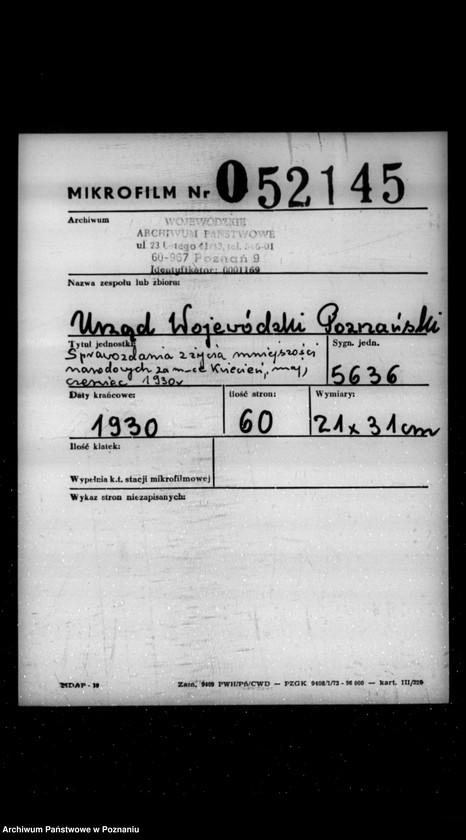 MIKROFILM Nr 052145
Archiwum
WOJEWÓDZKIE
ARCHIWUM PAŃSTWOWE
ul 23 Lutego 41/43, tel.
60-967 Poznań 9
Identyfikator: 0001169
Nazwa zespołu lub zbioru:
Urząd Wojewódzki Poznański
Tytuł jednostki
Sprawozdania z życia mniejszości
narodowych za m-ce Kwiecień, maj,
czerwiec 1930r
Sygn. jedn.
5636
Daty krańcowe:
1930
Ilość stron:
60
Wymiary:
21 x 31 cm
Ilość klatek:
Wypełnia k.t. stacji mikrofilmowej
Wykaz stron niezapisanych:
Zam. 9409 PWH/Pń/CWD — PZGK 9408/I/73 - 96 000 — kart. III/220
Archiwum Państwowe w Poznaniu